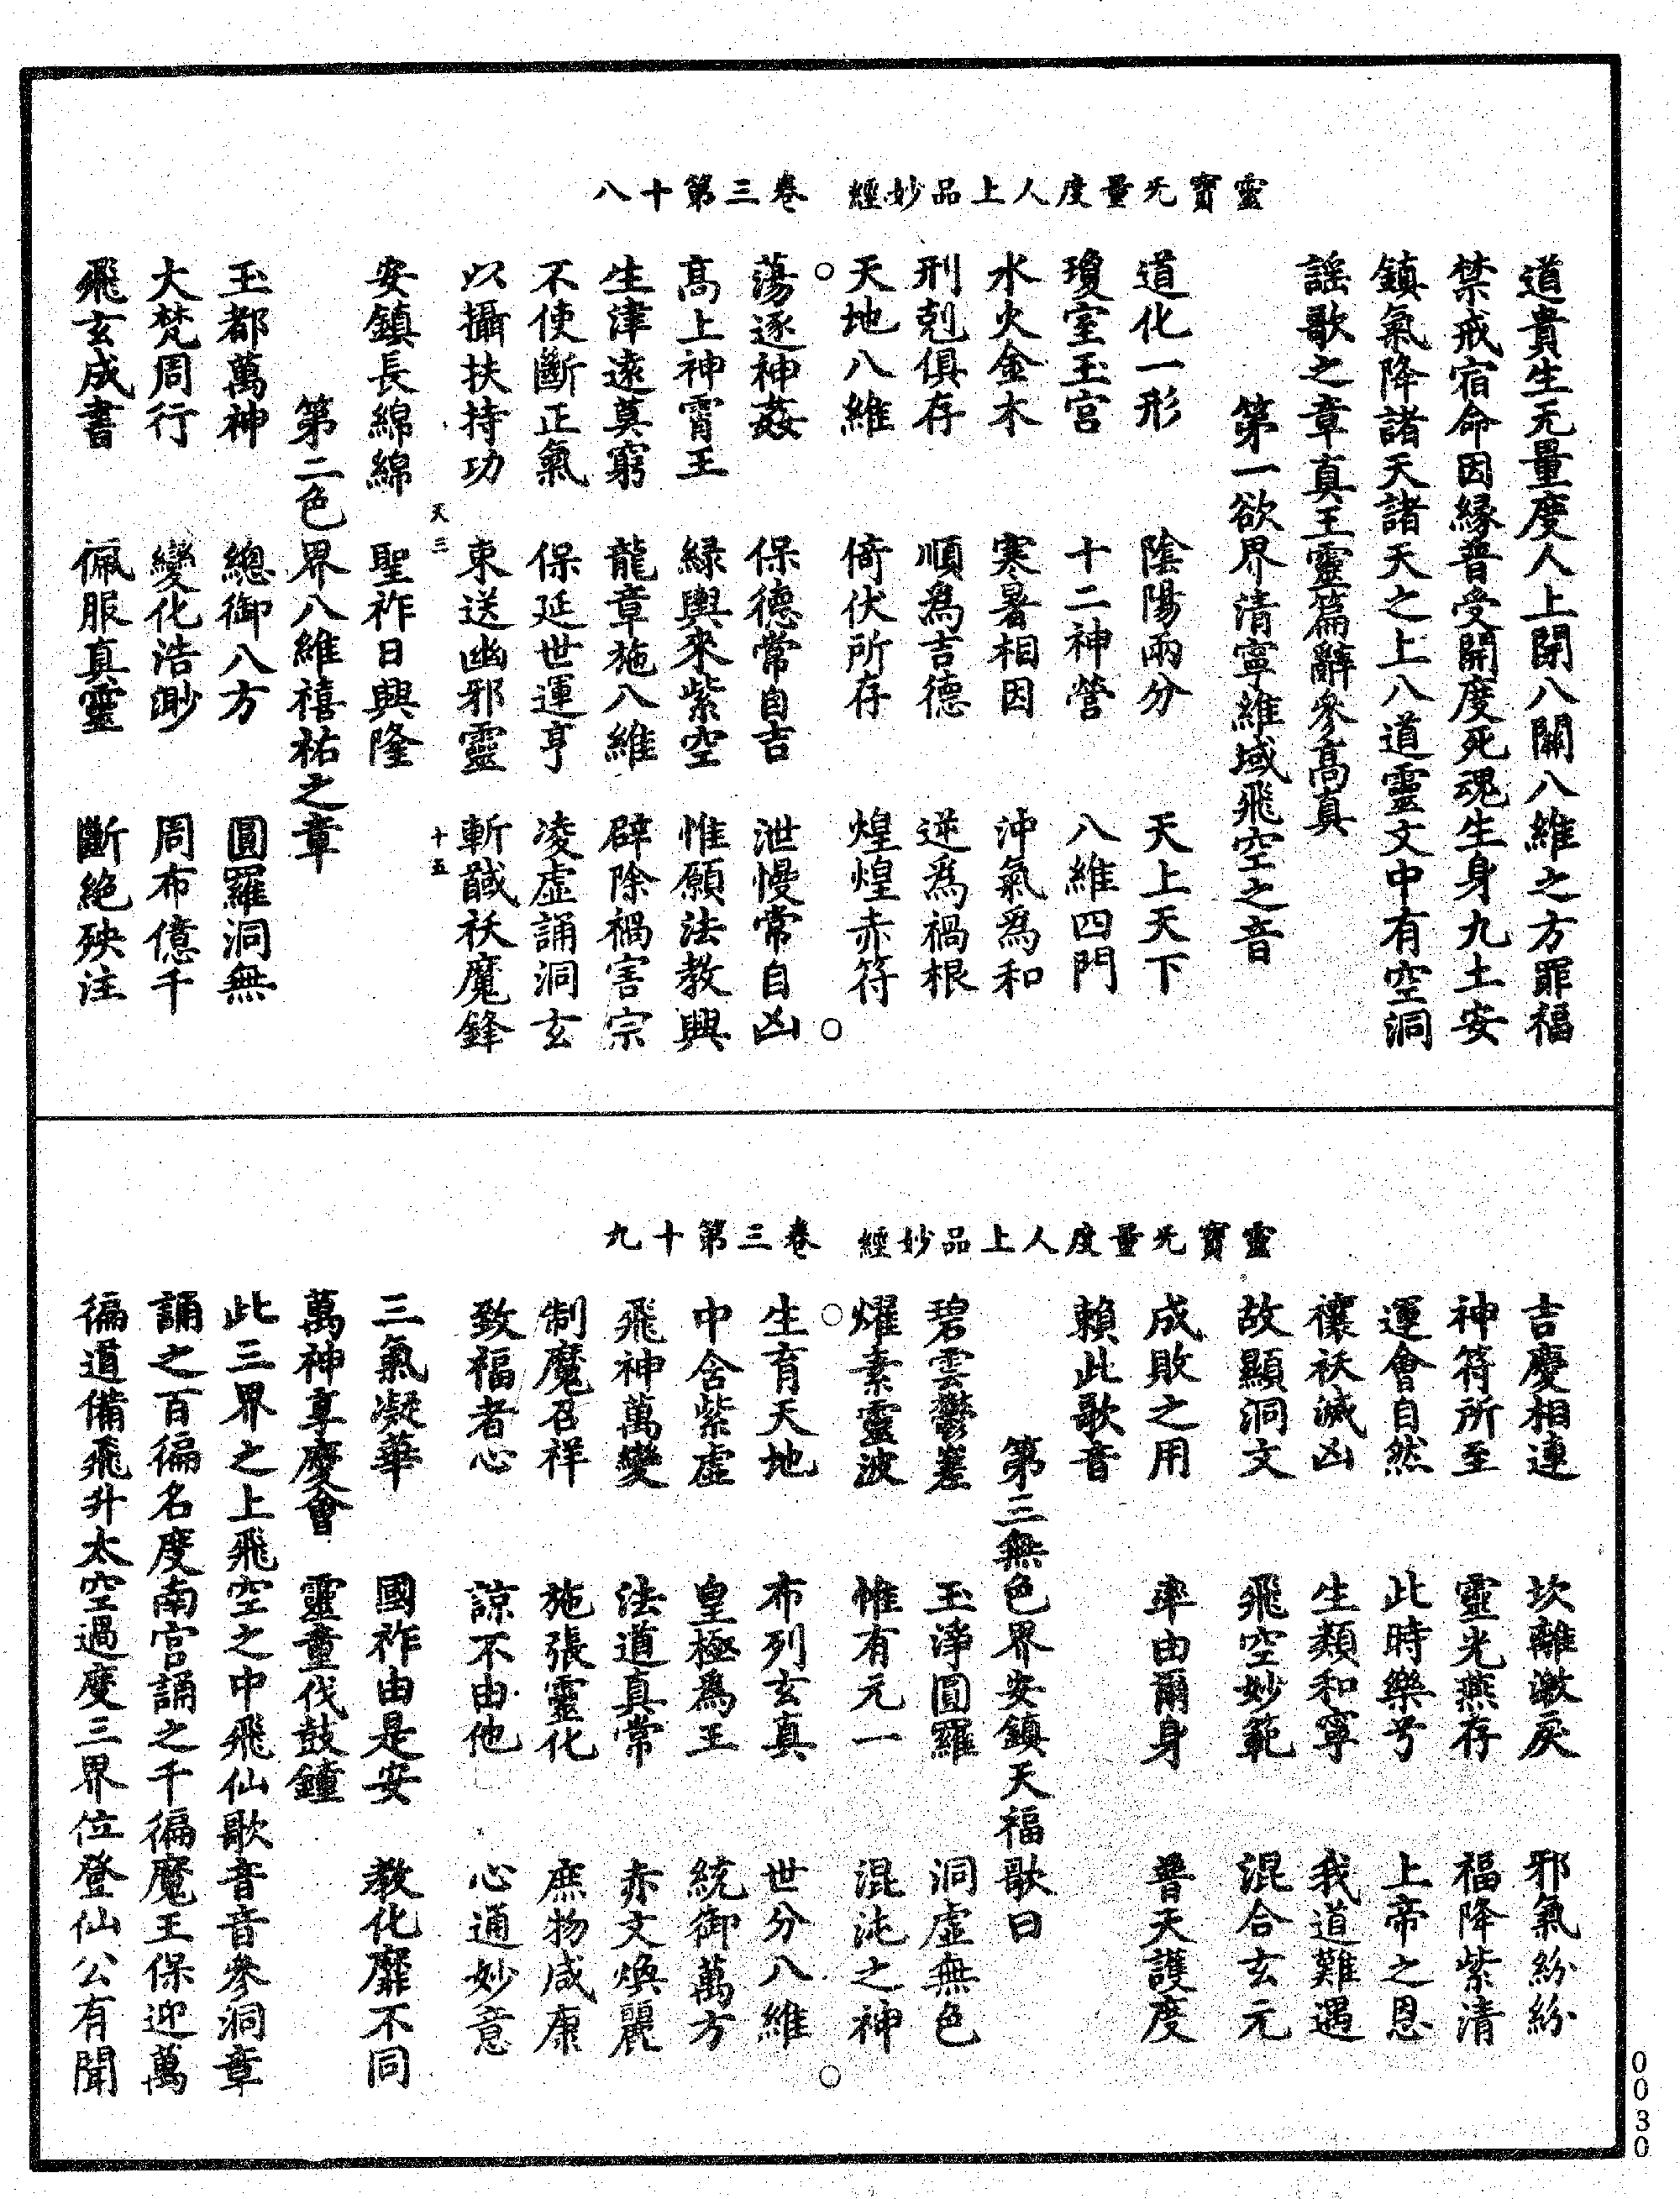 靈寶无量度人上品妙經　卷三第十八
道貴生无量度人上開八關八維之方罪福
禁戒宿命因緣普受開度死魂生身九土安
鎮氣降諸天諸天之上八道靈文中有空洞
謡歌之章真王靈篇辭參高真
第一欲界清寧維域飛空之音
道化一形　陰陽兩分　天上天下
瓊室玉宮　十二神營　八維四門
水火金木　寒暑相因　沖氣爲和
刑剋俱存　順爲吉德　逆爲禍根
天地八維　倚伏所存　煌煌赤符
蕩逐神姦　保德常自吉　泄慢常自凶
高上神霄王　緑輿來紫空　惟願法教興
生津遠莫窮　龍章施八維　辟除禍害宗
不使斷正氣　保延世運亨　凌虛誦洞玄
以攝扶持功　束送幽邪靈　斬馘祅魔鋒
天三　十五
安鎮長綿綿　聖祚日興隆
第二色界八維禧祐之章
玉都萬神　總御八方　圓羅洞無
大梵周行　變化浩渺　周布億千
飛玄成書　佩服真靈　斷絶殃注
靈寶无量度人上品妙經　卷三第十九
吉慶相連　坎離激戾　邪氣紛紛
神符所至　靈光燕存　福降紫清
運會自然　此時樂兮　上帝之恩
禳祅滅凶　生類和寧　我道難遇
故顯洞文　飛空妙範　混合玄元
成敗之用　率由爾身　普天護度
賴此歌音
第三無色界安鎮天福歌曰
碧雲鬱羞　玉淨圓羅　洞虛無色
燿素靈波　惟有元一　混沌之神
生育天地　布列玄真　世分八維
中含紫虛　皇極爲王　統御萬方
飛神萬變　法道真常　赤文煥麗
制魔召祥　施張靈化　庶物咸康
致福者心　諒不由他　心通妙意
三氣凝華　國祚由是安　教化靡不同
萬神享慶會　靈童伐鼓鐘
此三界之上飛空之中飛仙歌音音參洞章
誦之百徧名度南宮誦之千徧魔王保迎萬
徧道備飛升太空過度三界位登仙公有聞
0030